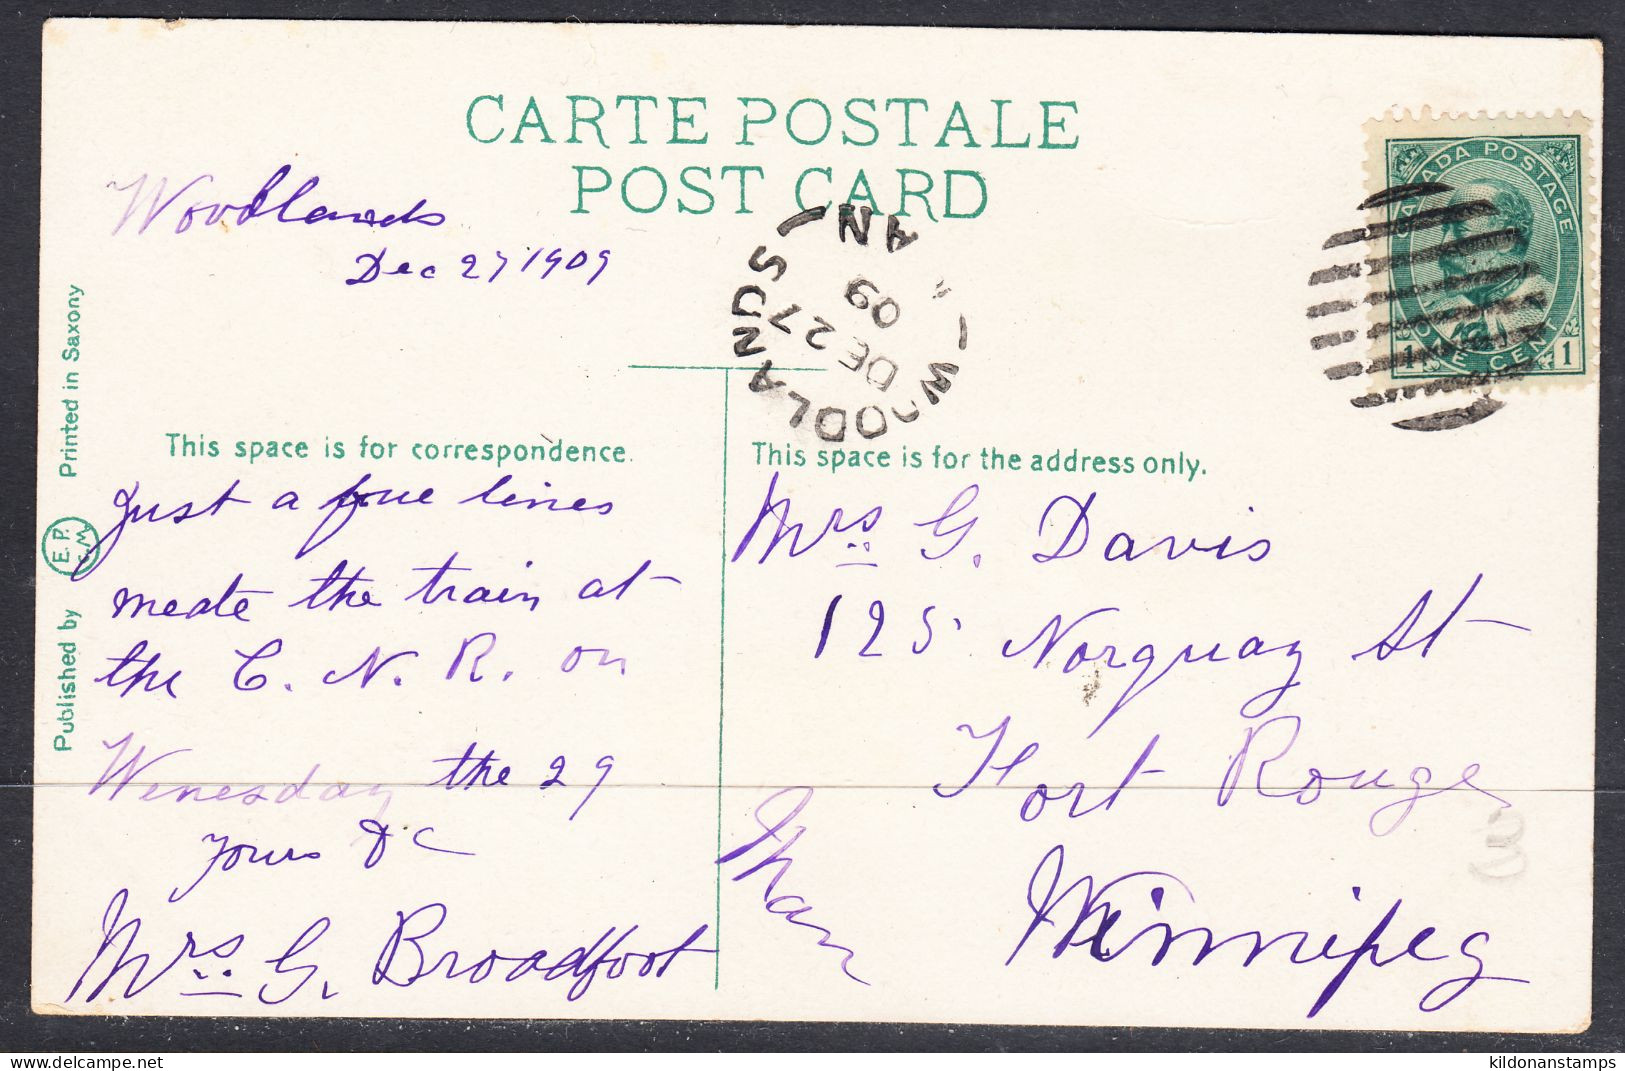 CARTE POSTALE
POST CARD
Woodlands
Dec 27 1909
WOODLANDS
AN
DE 27
09
CANADA POSTAGE
ONE CENT
1 1
This space is for correspondence.
Just a fue lines
meate the train at
the C. N. R. on
Wenesday the 29
Yours &c
Mrs G. Broadfoot
This space is for the address only.
Mrs G. Davis
125 Norquay St
Fort Rouge
Winnipeg
Man
Published by E.P. Printed in Saxony
kildonanstamps